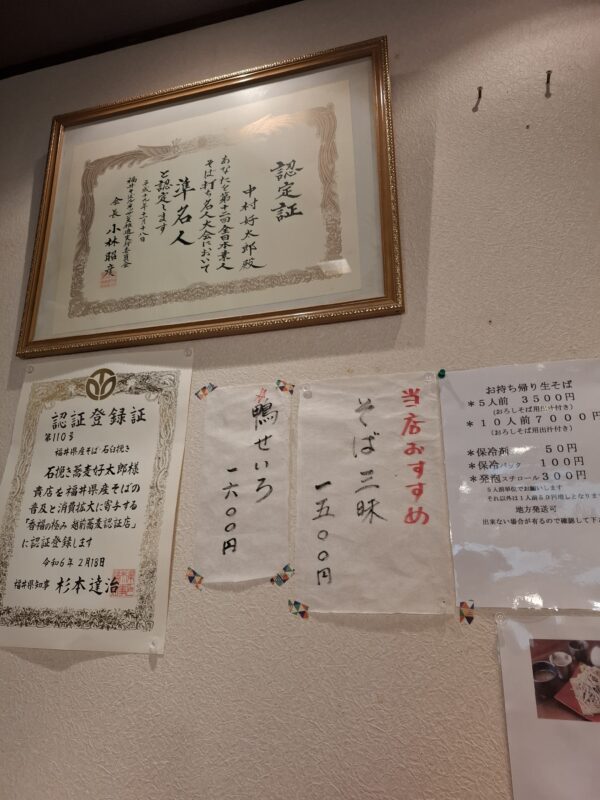 認定証
中村好太郎殿
あなたを第十二回全日本素人
そば打ち名人大会において
準名人
と認定します
平成十九年十一月十八日
会長 小林昭彦
認証登録証
第110号
福井県産そば・石臼挽き
石挽き蕎麦好太郎様
貴店を福井県産そばの
普及と消費拡大に寄与する
「香福の極み 越前蕎麦認証店」
に認証登録します
令和6年2月18日
福井県知事 杉本達治
鴨せいろ
一六〇〇円
当店おすすめ
そば三昧
一五〇〇円
お持ち帰り生そば
*5人前 3500円
(おろしそば用出汁付き)
*10人前 7000円
(おろしそば用出汁付き)
*保冷剤 50円
*保冷パック 100円
*発泡スチロール 300円
5人前単位でお願いします
それ以外は1人前50円増しとなりま
地方発送可
出来ない場合が有るので確認して下